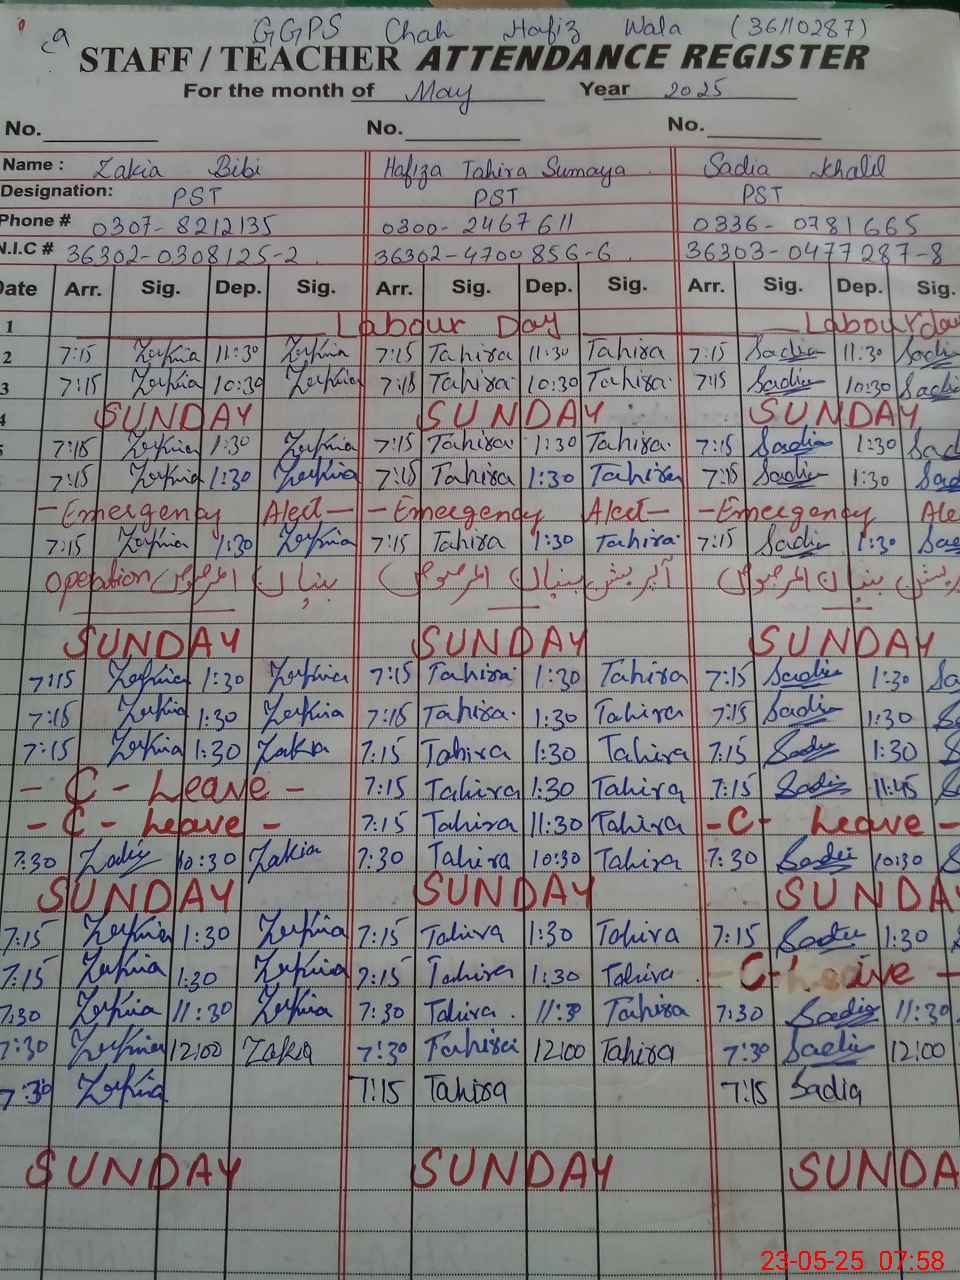 GGPS Chah Hafiz Wala (36110287)
STAFF / TEACHER ATTENDANCE REGISTER
For the month of May Year 2025
No. No. No.
Name : Zakia Bibi Hafiza Tahira Sumaya Sadia Khalil
Designation: PST PST PST
Phone # 0307-8212135 0300-2467611 0336-0781665
N.I.C # 36302-0308125-2 36302-4700856-6 36303-0477287-8
Date Arr. Sig. Dep. Sig. Arr. Sig. Dep. Sig. Arr. Sig. Dep. Sig.
1 Labour Day Labour day
2 7:15 Zakia 11:30 Zakia 7:15 Tahira 11:30 Tahira 7:15 Sadia 11:30 Sadia
3 7:15 Zakia 10:30 Zakia 7:15 Tahira 10:30 Tahira 7:15 Sadia 10:30 Sadia
4 SUNDAY SUNDAY SUNDAY
7:15 Zakia 1:30 Zakia 7:15 Tahira 1:30 Tahira 7:15 Sadia 1:30 Sad
7:15 Zakia 1:30 Zakia 7:15 Tahira 1:30 Tahira 7:15 Sadia 1:30 Sad
-Emergency Alert- -Emergency Alert- -Emergency Ale
7:15 Zakia 1:30 Zakia 7:15 Tahira 1:30 Tahira 7:15 Sadia 1:30 Sad
Operation بنیان المرصوص آپریشن بنیان المرصوص بنیان المرصوص
SUNDAY SUNDAY SUNDAY
7:15 Zakia 1:30 Zakia 7:15 Tahira 1:30 Tahira 7:15 Sadia 1:30 Sa
7:15 Zakia 1:30 Zakia 7:15 Tahira 1:30 Tahira 7:15 Sadia 1:30 S
7:15 Zakia 1:30 Zakia 7:15 Tahira 1:30 Tahira 7:15 Sadia 1:30 S
- C - Leave - 7:15 Tahira 1:30 Tahira 7:15 Sadia 11:45 S
- C - Leave - 7:15 Tahira 11:30 Tahira -C- Leave -
7:30 Zakia 10:30 Zakia 7:30 Tahira 10:30 Tahira 7:30 Sadia 10:30 S
SUNDAY SUNDAY SUNDA
7:15 Zakia 1:30 Zakia 7:15 Tahira 1:30 Tahira 7:15 Sadia 1:30
7:15 Zakia 1:30 Zakia 7:15 Tahira 1:30 Tahira -C-Leave -
7:30 Zakia 11:30 Zakia 7:30 Tahira 11:30 Tahira 7:30 Sadia 11:30
7:30 Zakia 12:00 Zakia 7:30 Tahira 12:00 Tahira 7:30 Sadia 12:00
7:30 Zakia 7:15 Tahira 7:15 Sadia
SUNDAY SUNDAY SUNDA
23-05-25 07:58